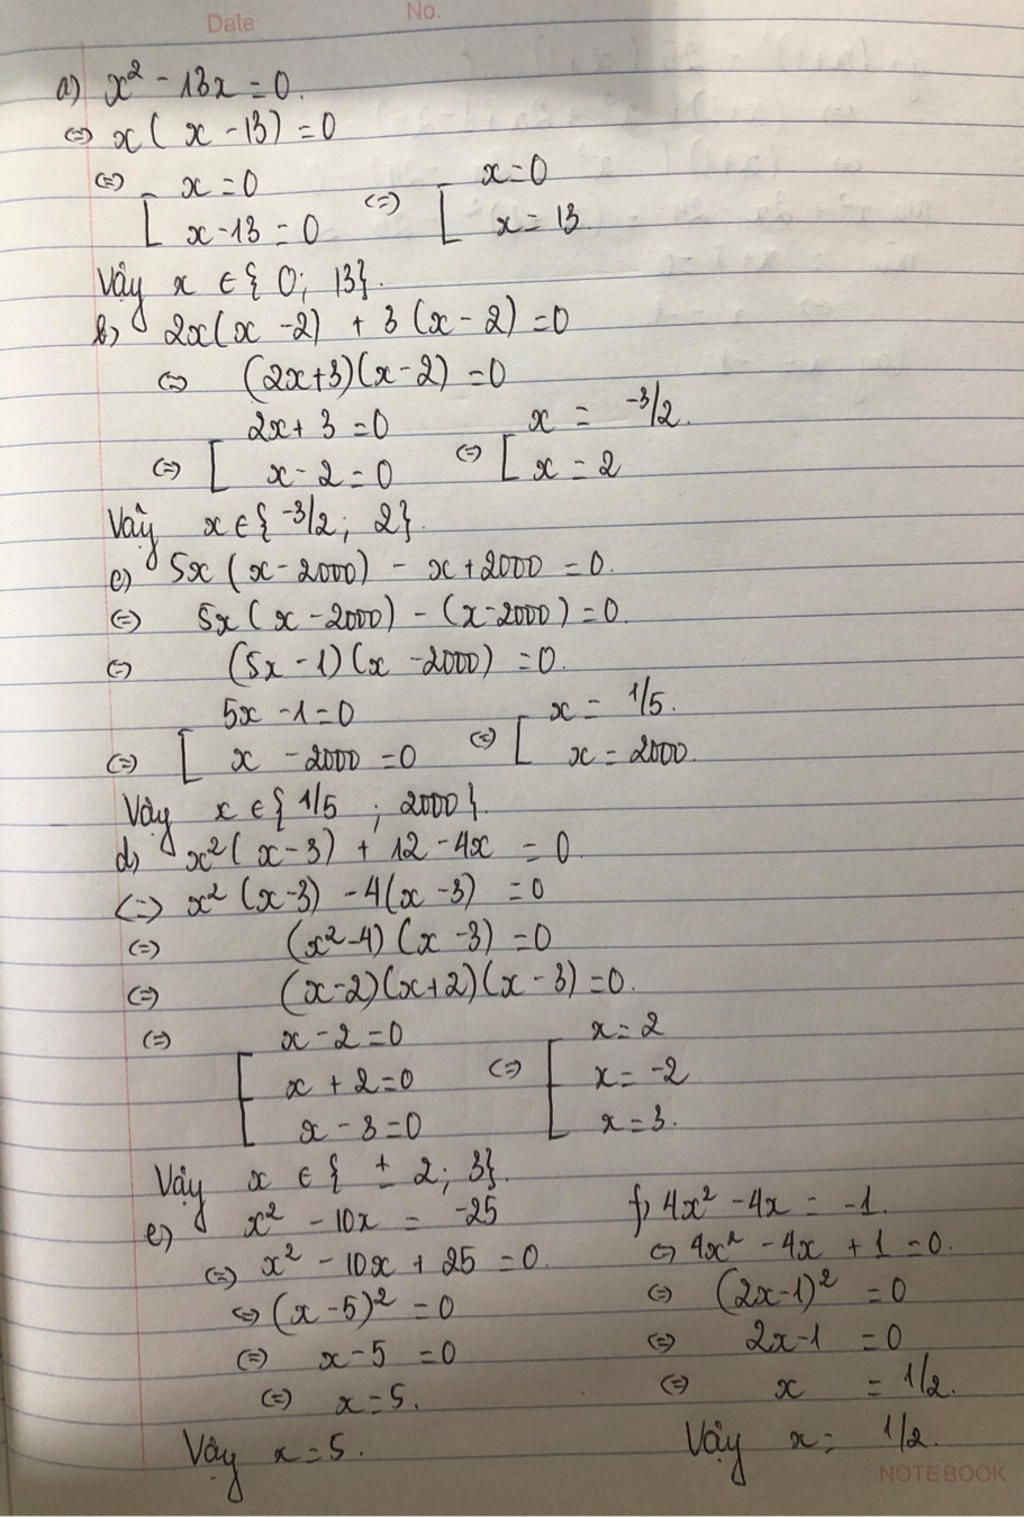 Date No.
a) x² - 13x = 0.
⇔ x ( x - 13) = 0
⇔ [ x = 0 ⇔ [ x = 0
x - 13 = 0 x = 13.
Vậy x ∈ { 0; 13}.
b) 2x(x - 2) + 3 (x - 2) = 0
⇔ (2x+3)(x-2) = 0
2x + 3 = 0 x = -3/2.
⇔ [ x - 2 = 0 ⇔ [ x = 2
Vậy x ∈ { -3/2; 2}.
c) 5x (x - 2000) - x + 2000 = 0.
⇔ 5x ( x - 2000) - (x - 2000) = 0.
⇔ (5x - 1)(x - 2000) = 0.
5x - 1 = 0 x = 1/5.
⇔ [ x - 2000 = 0 ⇔ [ x = 2000.
Vậy x ∈ { 1/5 ; 2000}.
d) x² ( x - 3) + 12 - 4x = 0.
⇔ x² (x - 3) - 4(x - 3) = 0
⇔ (x² - 4) (x - 3) = 0
⇔ (x - 2)(x + 2)(x - 3) = 0.
⇔ x - 2 = 0 x = 2
[ x + 2 = 0 ⇔ [ x = -2
x - 3 = 0 x = 3.
Vậy x ∈ { ± 2; 3}.
e) x² - 10x = -25
⇔ x² - 10x + 25 = 0.
⇔ (x - 5)² = 0
⇔ x - 5 = 0
⇔ x = 5.
Vậy x = 5.
f) 4x² - 4x = -1.
⇔ 4x² - 4x + 1 = 0.
⇔ (2x - 1)² = 0
⇔ 2x - 1 = 0
⇔ x = 1/2.
Vậy x = 1/2.
NOTEBOOK